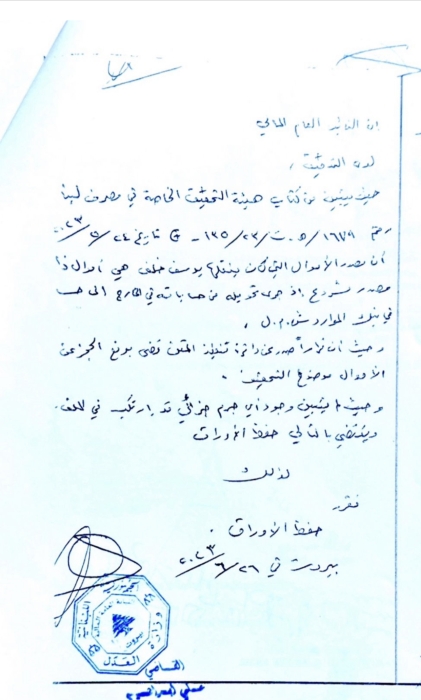 إن النائب العام المالي
لدى التدقيق ،
حيث يتبين من كتاب هيئة التحقيق الخاصة في مصرف لبنان
رقم ١٦٧٩/ه.ت/٢٣/١٣٥ - ج تاريخ ٢٠٢٣/٥/٢٤
أن مصدر الأموال التي كان ينقلها يوسف خلف هي أموال ذات
مصدر مشروع إذ جرى تحويله من حساباته في الخارج الى حسابه
في بنك الموارد ش.م.ل ،
وحيث أن قراراً صدر عن دائرة تنفيذ المتن قضى برفع الحجز عن
الأموال موضوع التحقيق .
وحيث لم يتبين وجود أي جرم جزائي قد ارتكب في الملف .
ويقتضي بالتالي حفظ الأوراق
لذلك
نقرر
حفظ الأوراق .
بيروت في ٢٠٢٣/٦/٢٦
الجمهورية اللبنانية
وزارة العدل
بيروت
القاضي
علي ابراهيم